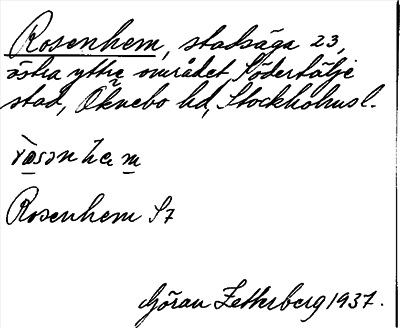 Rosenhem, stadsäga 23,
östra yttre området Södertälje
stad, Öknebo hd, Stockholms l.
ròsənhem
Rosenhem S7
Göran Zetterberg 1937.